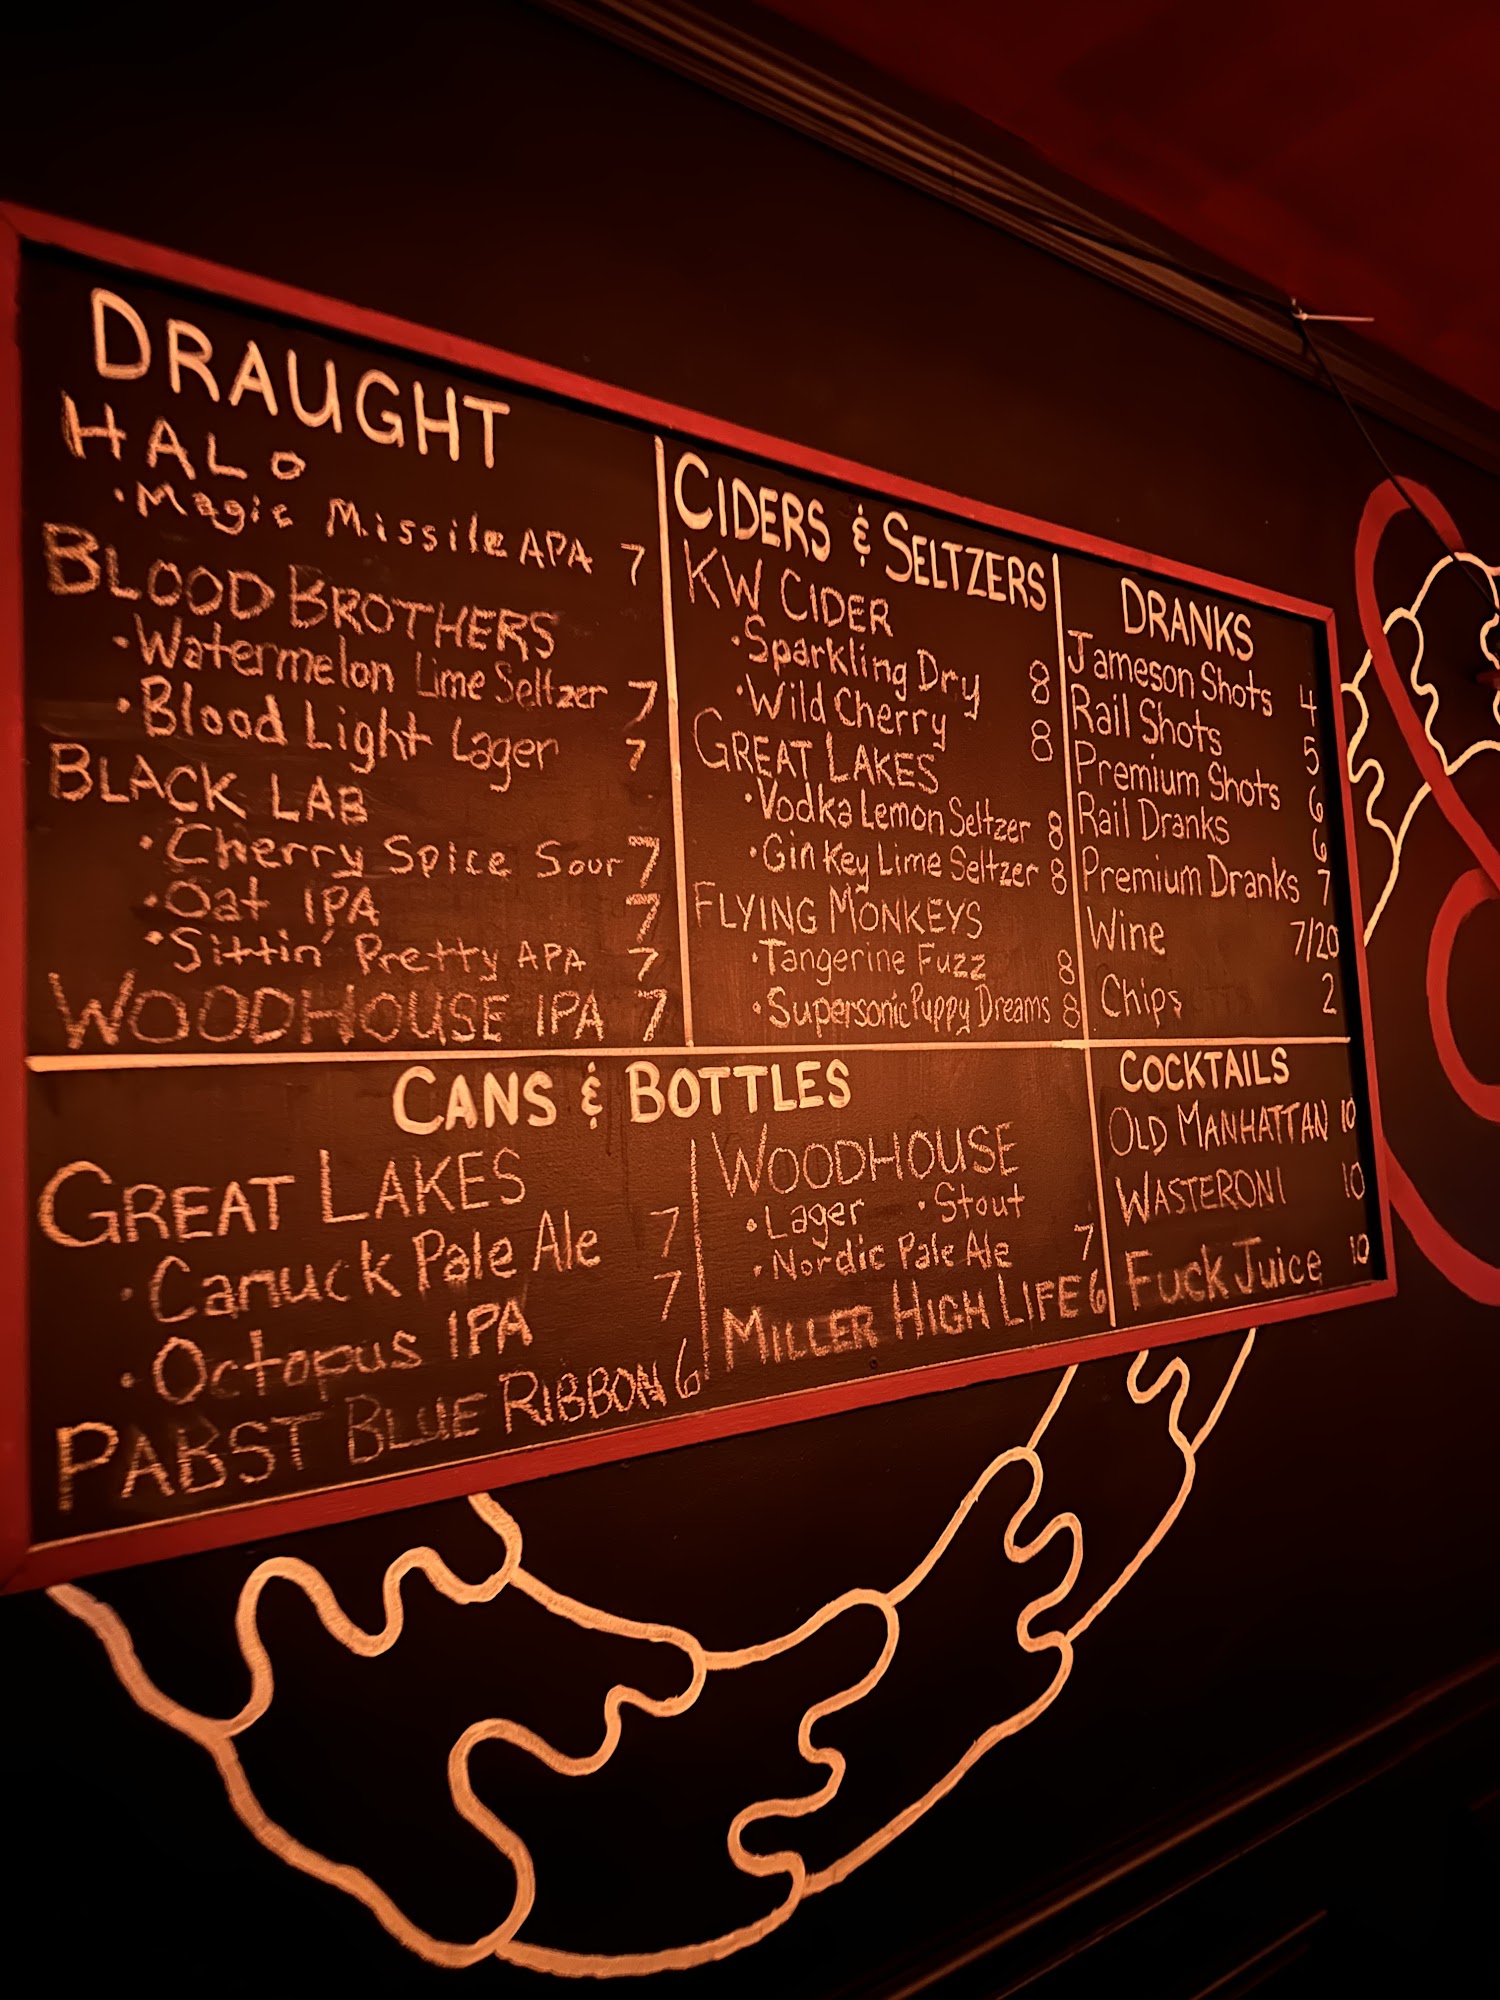 DRAUGHT
HALO
·Magic Missile APA 7
BLOOD BROTHERS
·Watermelon Lime Seltzer 7
·Blood Light Lager 7
BLACK LAB
·Cherry Spice Sour 7
·Oat IPA 7
·Sittin' Pretty APA 7
WOODHOUSE IPA 7
CIDERS & SELTZERS
KW CIDER
·Sparkling Dry 8
·Wild Cherry 8
GREAT LAKES
·Vodka Lemon Seltzer 8
·Gin Key Lime Seltzer 8
FLYING MONKEYS
·Tangerine Fuzz 8
·Supersonic Puppy Dreams 8
DRANKS
Jameson Shots 4
Rail Shots 5
Premium Shots 6
Rail Dranks 6
Premium Dranks 7
Wine 7/20
Chips 2
CANS & BOTTLES
GREAT LAKES
·Canuck Pale Ale 7
·Octopus IPA 7
PABST BLUE RIBBON 6
WOODHOUSE
·Lager ·Stout
·Nordic Pale Ale 7
MILLER HIGH LIFE 6
COCKTAILS
OLD MANHATTAN 10
WASTERONI 10
FUCK JUICE 10